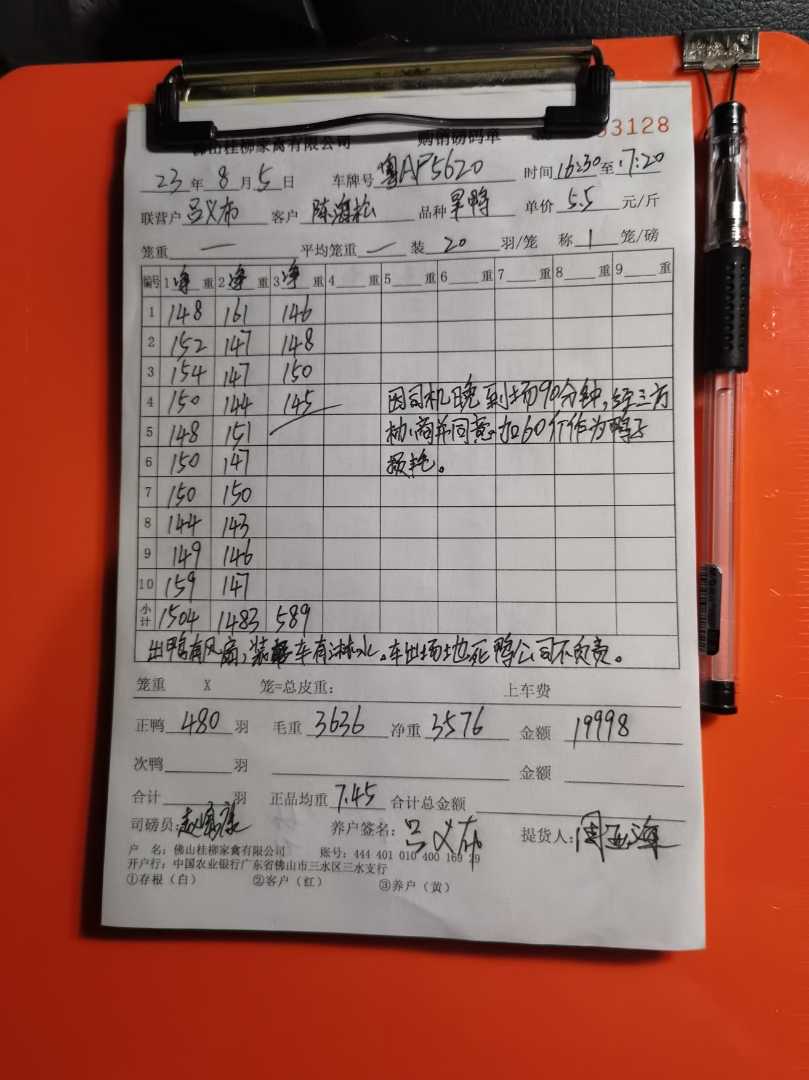 佛山桂柳家禽有限公司 购销磅码单 53128
23年8月5日 车牌号 粤AP5620 时间16:30至17:20
联营户 吕义布 客户 陈海松 品种 旱鸭 单价 5.5 元/斤
笼重 — 平均笼重 — 装 20 羽/笼 称 1 笼/磅
编号 1净重 2净重 3净重 4 重 5 重 6 重 7 重 8 重 9 重
1 148 161 146
2 152 147 148
3 154 147 150
4 150 144 145 因司机晚到场90分钟,经三方
5 148 151 协商并同意扣60斤作为鸭子
6 150 147 损耗。
7 150 150
8 144 143
9 149 146
10 159 147
小计 1504 1483 589
出鸭有风扇,装车有淋水。车出场地死鸭公司不负责。
笼重 X 笼=总皮重: 上车费
正鸭 480 羽 毛重 3636 净重 3576 金额 19998
次鸭 羽 金额
合计 羽 正品均重 7.45 合计总金额
司磅员: 养户签名: 吕义布 提货人:
户 名: 佛山桂柳家禽有限公司 账号: 444 401 010 400 169 29
开户行: 中国农业银行广东省佛山市三水区三水支行
①存根(白) ②客户(红) ③养户(黄)